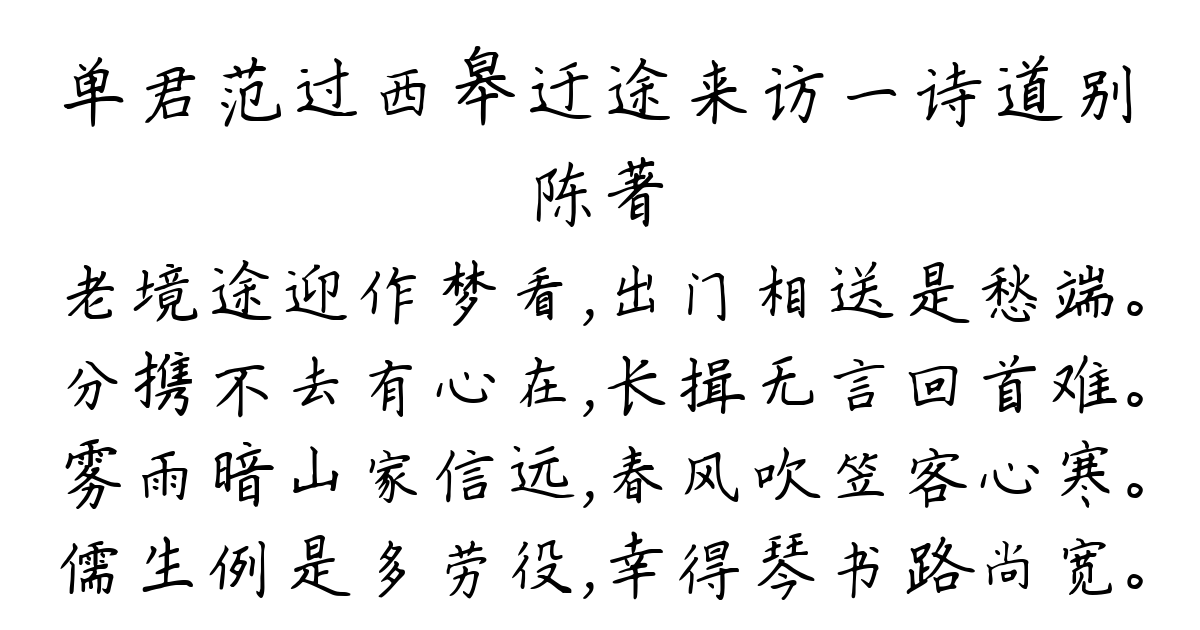 单君范过西皋迁途来访一诗道别
陈著
老境途迎作梦看,出门相送是愁端。
分携不去有心在,长揖无言回首难。
雾雨暗山家信远,春风吹笠客心寒。
儒生例是多劳役,幸得琴书路尚宽。